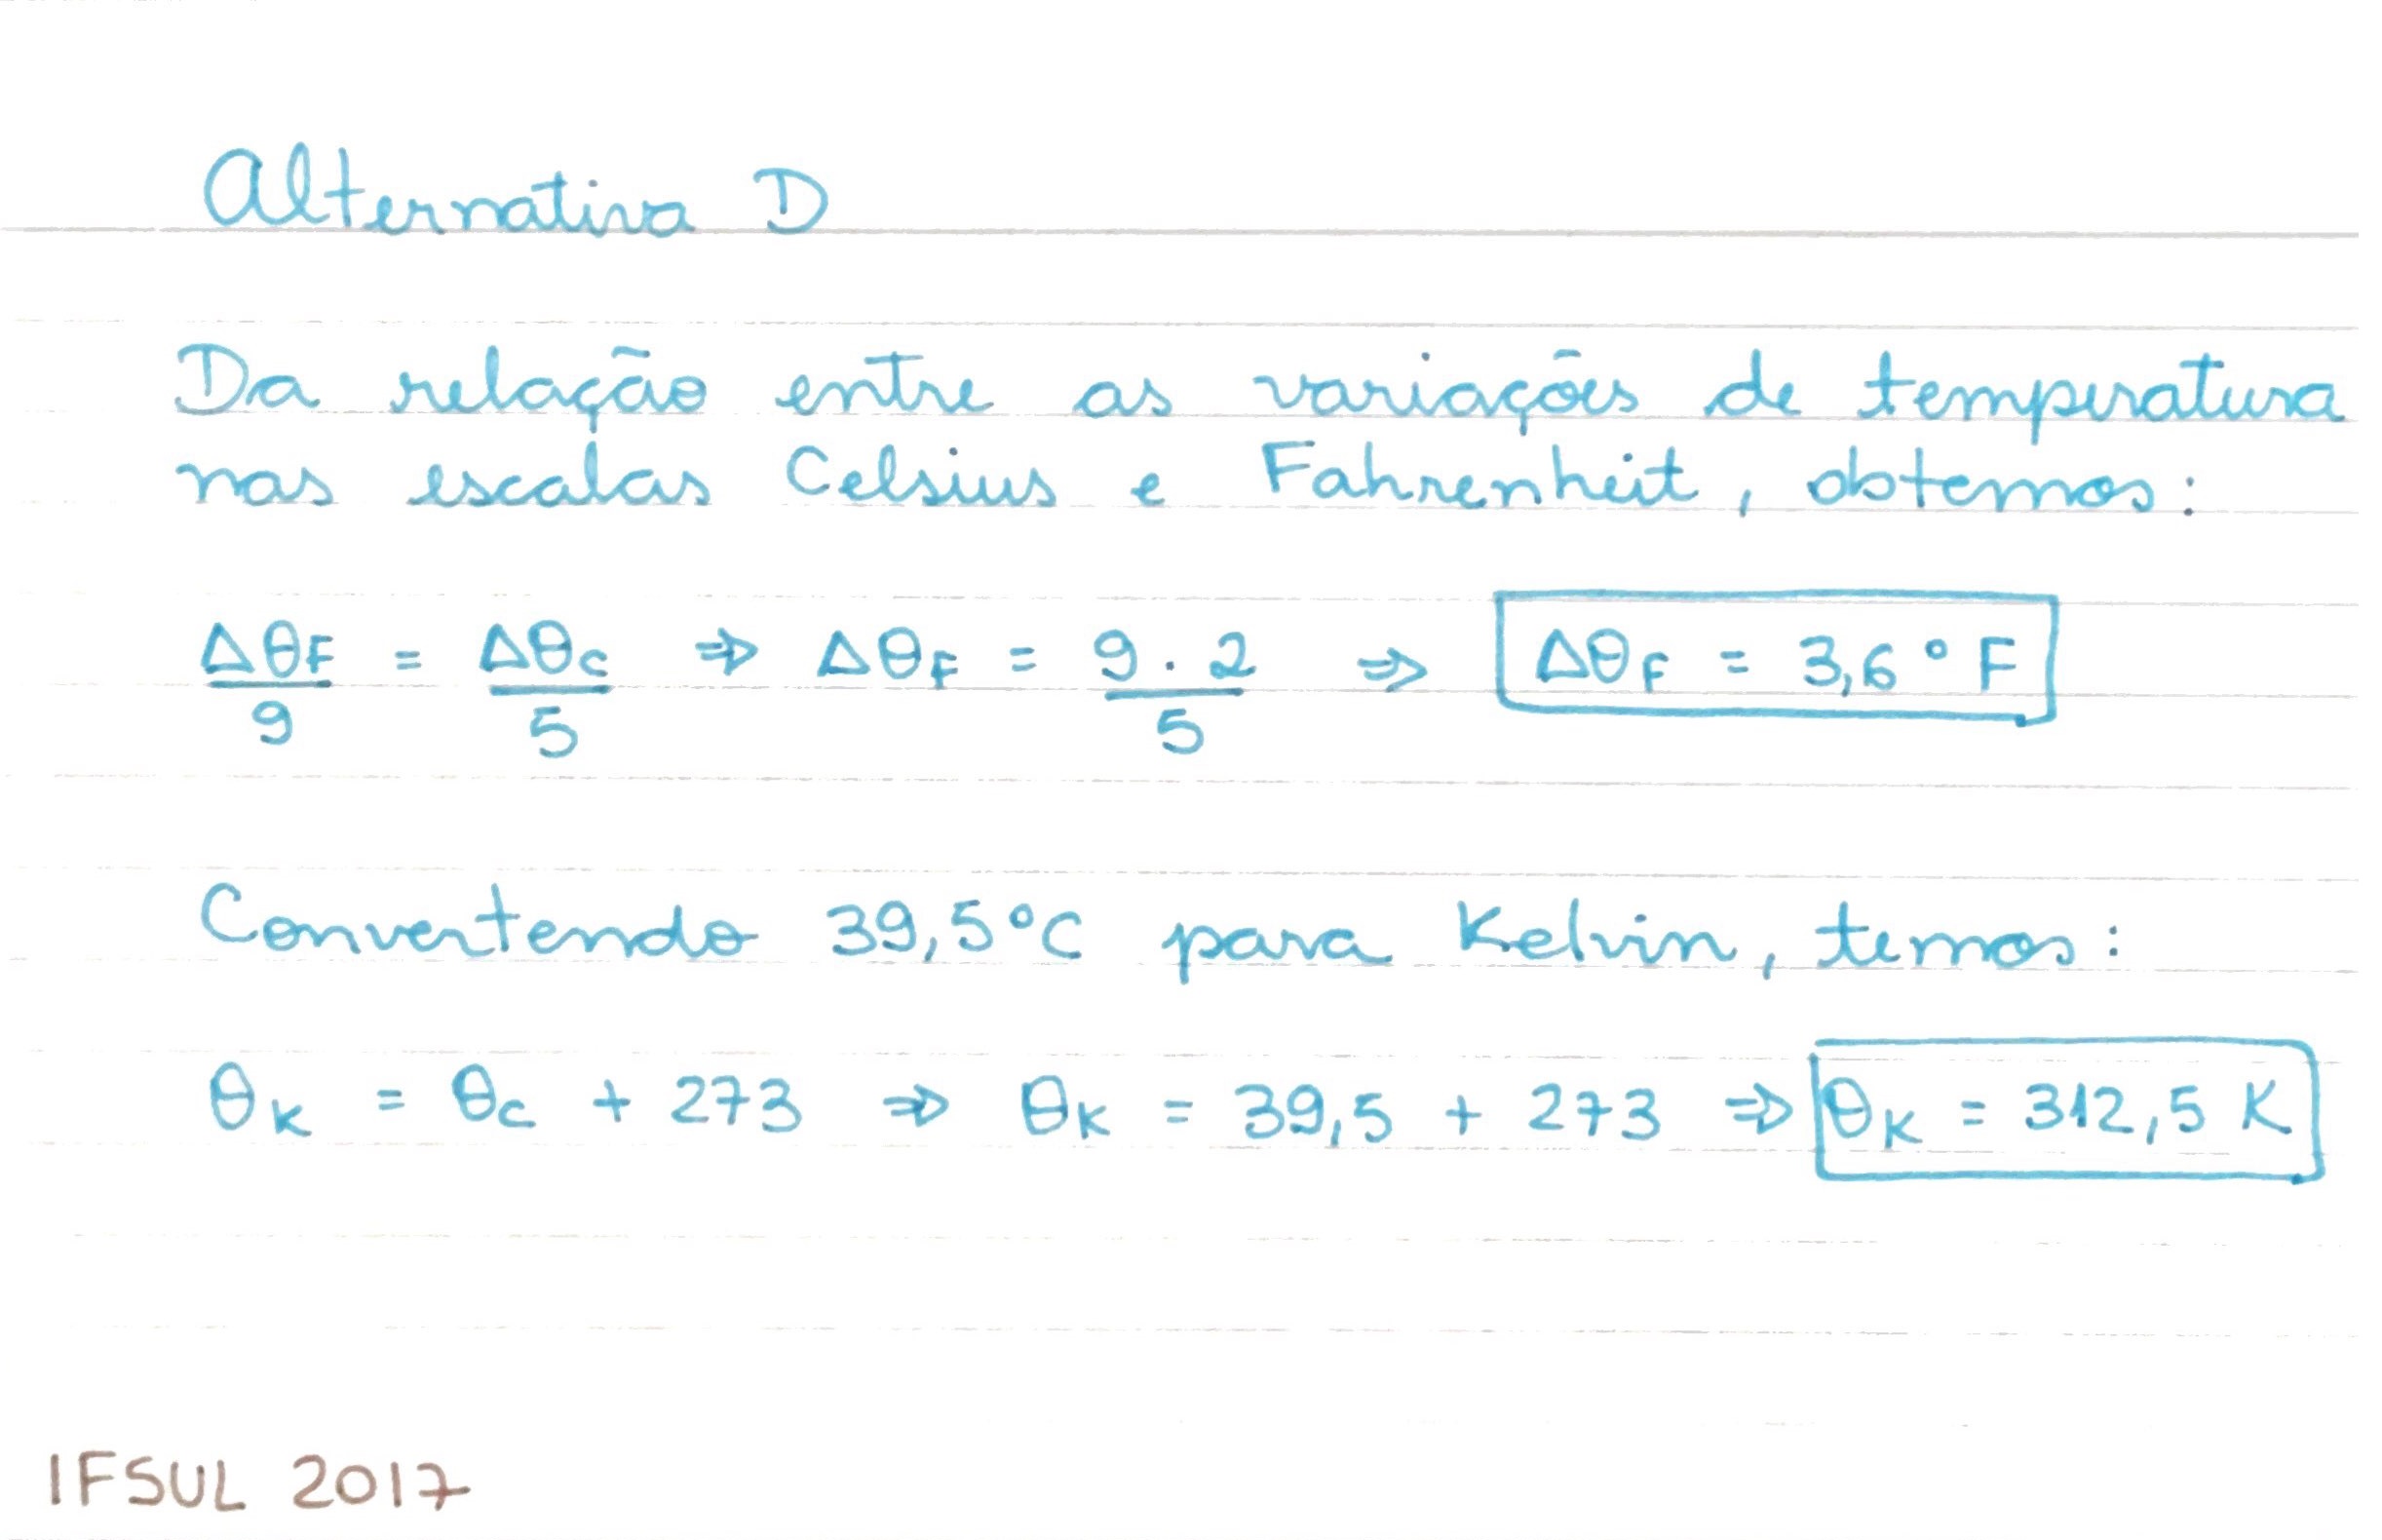 Alternativa D
Da relação entre as variações de temperatura
nas escalas Celsius e Fahrenheit, obtemos:
ΔθF/9 = Δθc/5 ⇒ ΔθF = 9 . 2/5 ⇒ ΔθF = 3,6 °F
Convertendo 39,5°C para Kelvin, temos:
θK = θc + 273 ⇒ θK = 39,5 + 273 ⇒ θK = 312,5 K
IFSUL 2017